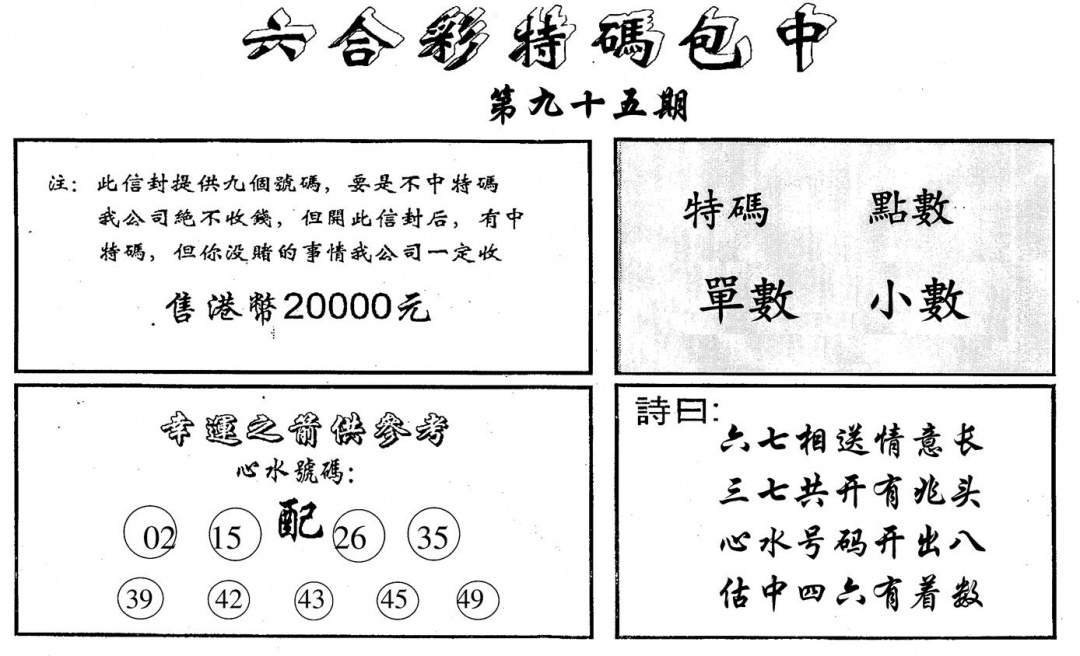 六合彩特碼包中
第九十五期
注：此信封提供九個號碼，要是不中特碼
我公司絶不收錢，但開此信封后，有中
特碼，但你没賭的事情我公司一定收
售港幣20000元
特碼 點數
單數 小數
幸運之箭供參考
心水號碼：
配
02 15 26 35
39 42 43 45 49
詩曰：
六七相送情意长
三七共开有兆头
心水号码开出八
估中四六有着数